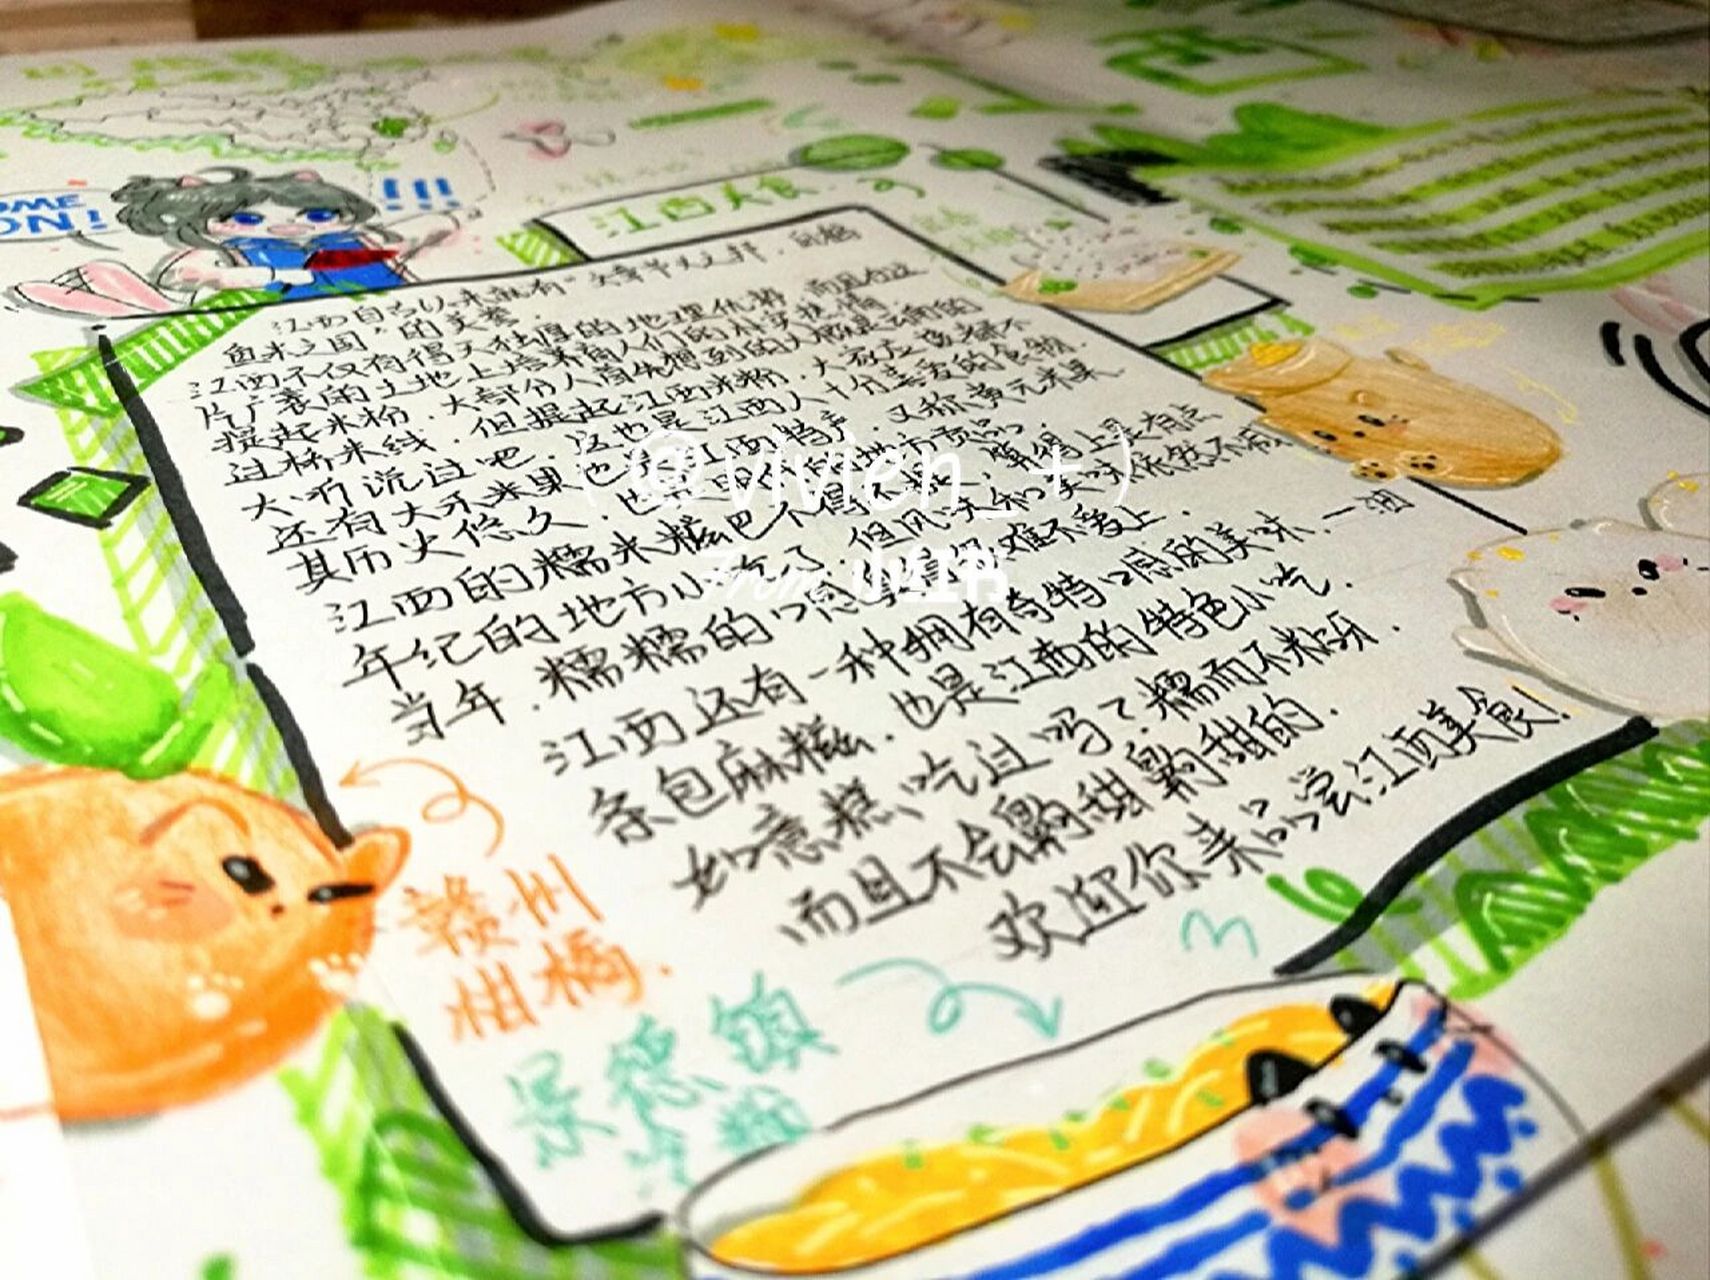 OME
ON!
!!!
江西美食
江西自古以来就有“文章节义之邦，白鹤
鱼米之国”的美誉．
江西不仅有得天独厚的地理优势，而且在这
片广袤的土地上培养商人们的朴实热情
提起米粉．大部分人首先想到的大概是云南的
过桥米线．但提起江西米粉．大家应该都不
大听说过吧．这也是江西人十分喜爱的食物．
还有大禾米果也是江西特产．又称黄元米果
其历史悠久．也
江西的糯米糍粑不得不提，算得上是有点
年纪的地方小吃了．但风味和美味依然不减
当年．糯糯的口感
难不爱上．
江西还有一种拥有奇特口感的美味．一油
条包麻糍．也是江西的特色小吃．
如意糕吃过吗？糯而不粘牙．
而且不会齁甜齁甜的．
欢迎你来品尝江西美食！
赣州
柑橘．
景德镇
冷粉
(@vivien_+)
From 小红书